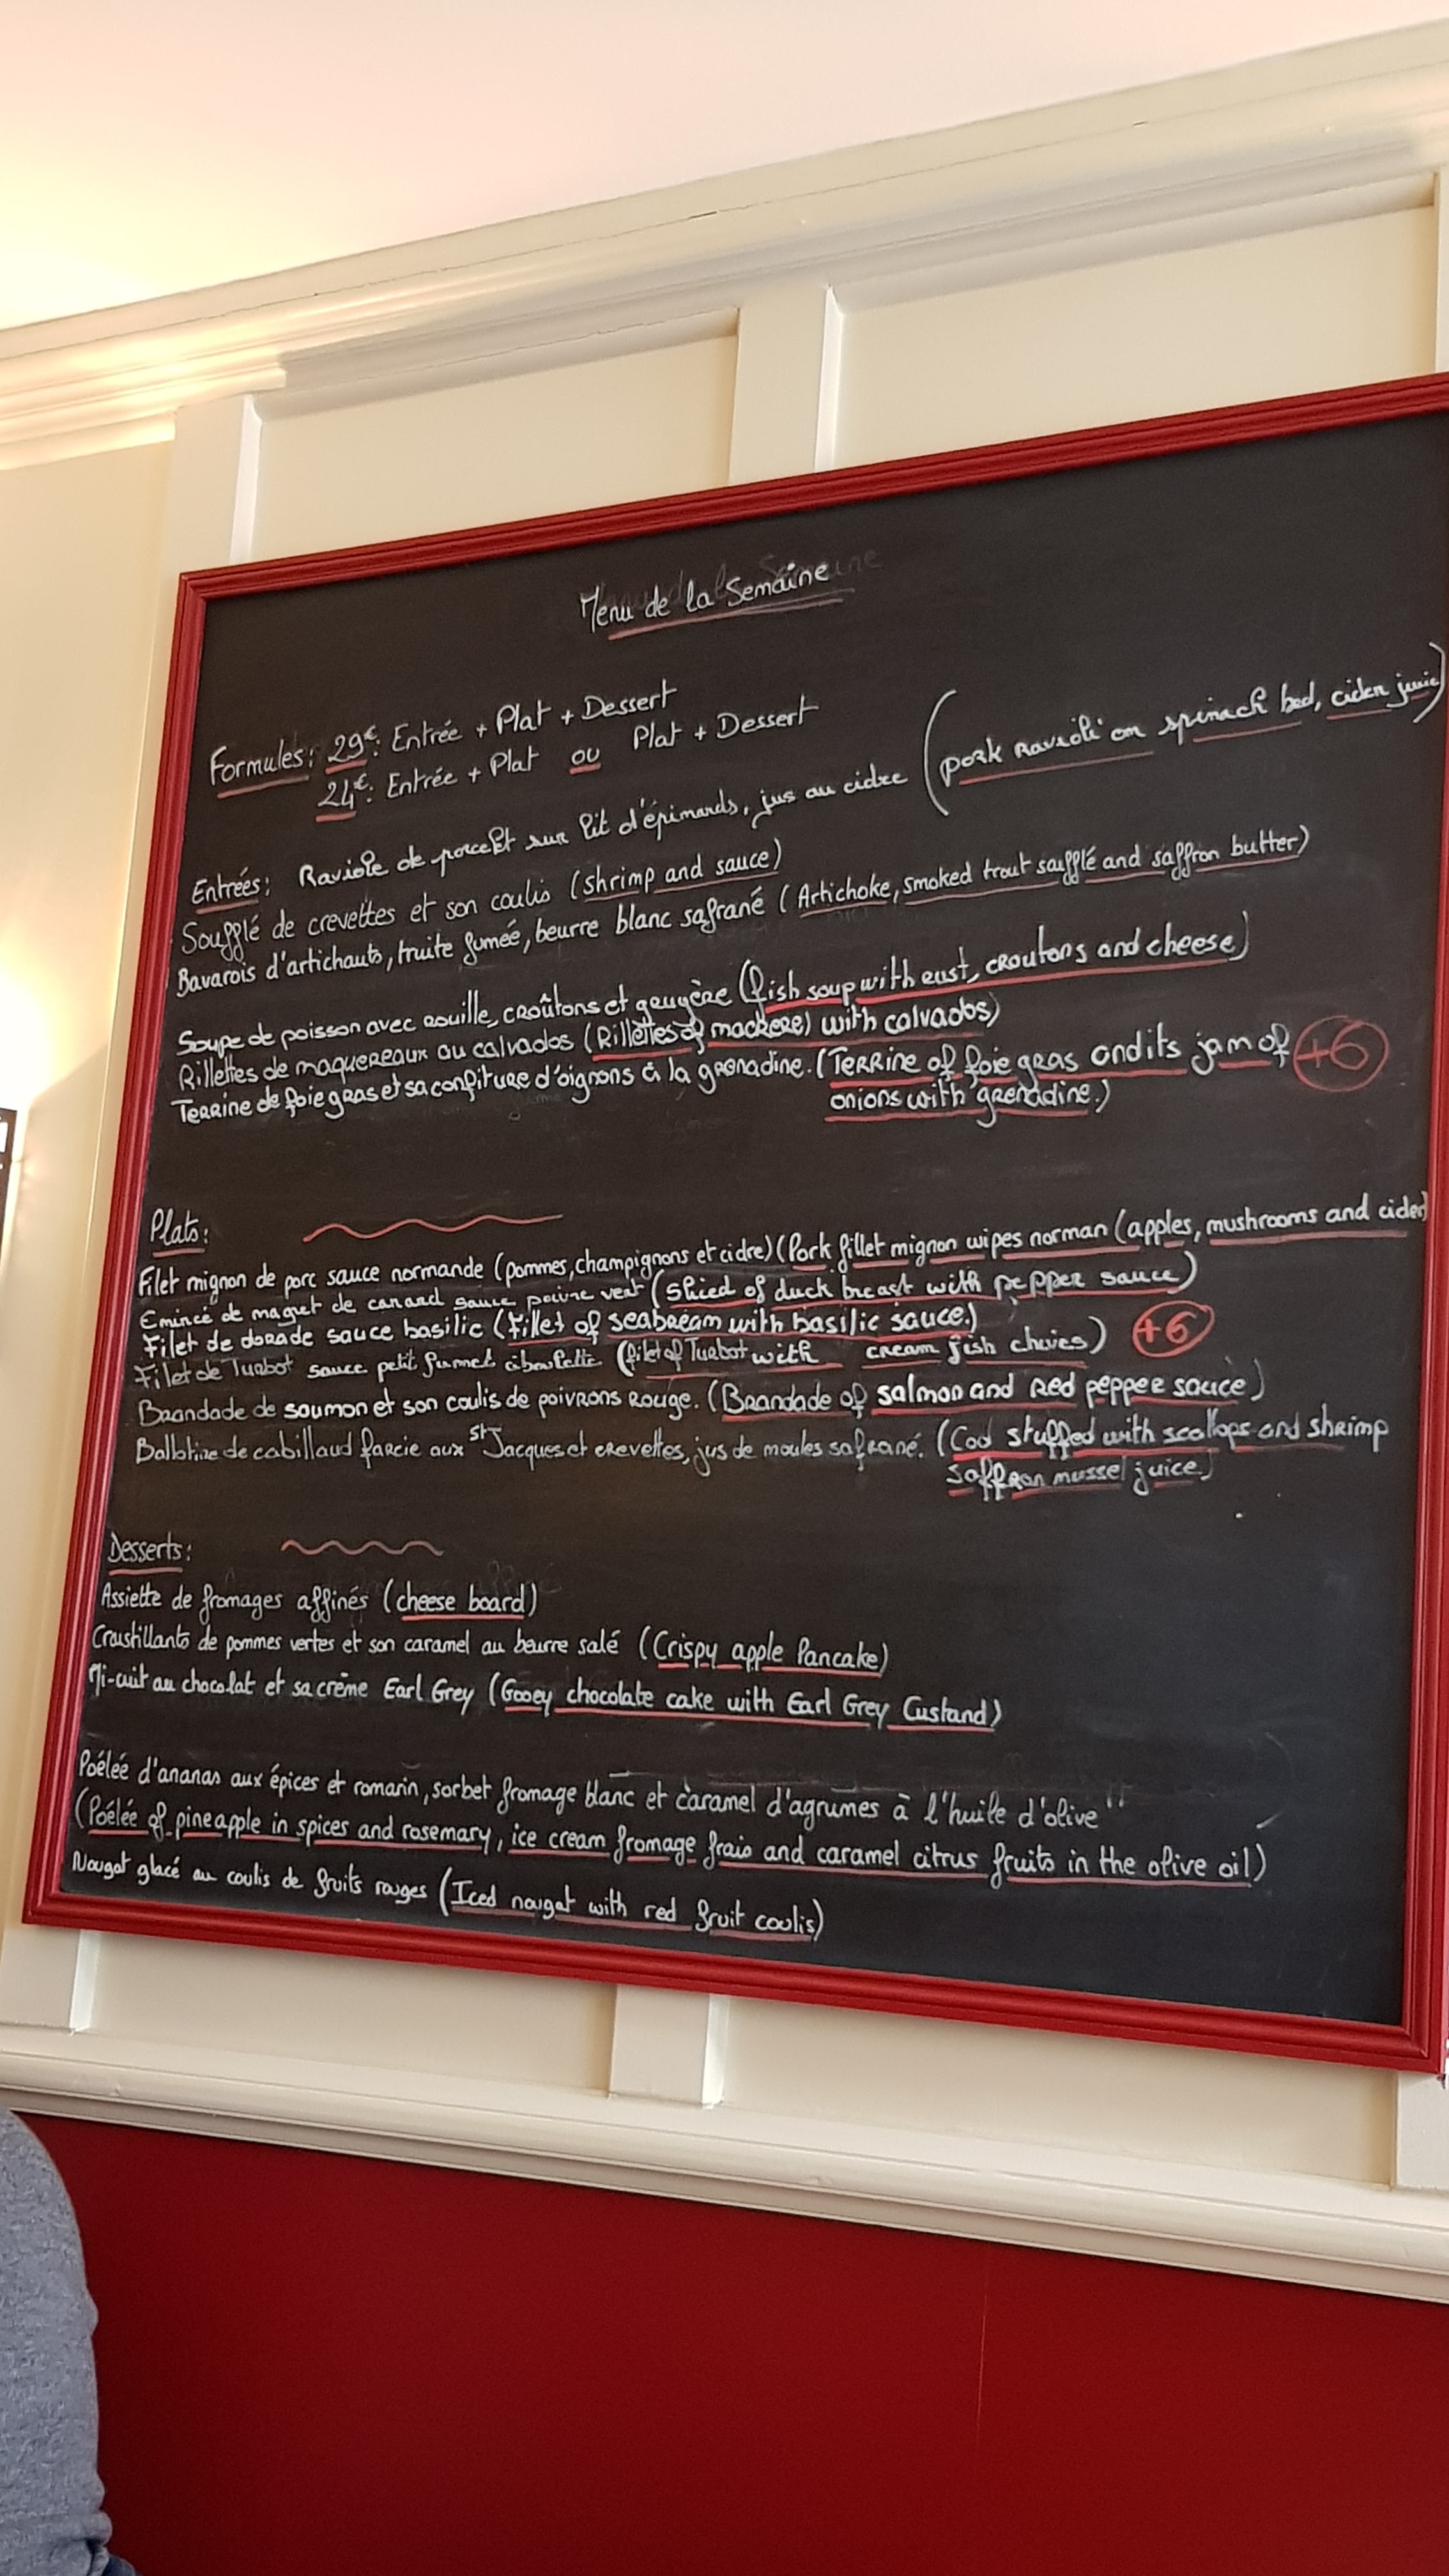 Menu de la Semaine
Formules: 29€: Entrée + Plat + Dessert
24€: Entrée + Plat ou Plat + Dessert
Entrées: Raviole de porcelet sur lit d'épinards, jus au cidre (pork ravioli on spinach bed, cider juice)
Soufflé de crevettes et son coulis (Shrimp and sauce)
Bavarois d'artichauts, truite fumée, beurre blanc safrané (Artichoke, smoked trout soufflé and saffron butter)
Soupe de poisson avec rouille, croûtons et gruyère (fish soup with rust, croutons and cheese)
Rillettes de maquereaux au calvados (Rillettes of mackerel with calvados)
Terrine de foie gras et sa confiture d'oignons à la grenadine. (Terrine of foie gras and its jam of +6
onions with grenadine.)
Plats:
Filet mignon de porc sauce normande (pommes, champignons et cidre) (Pork fillet mignon wipes norman (apples, mushrooms and cider)
Emincé de magret de canard sauce poivre vert (Sliced of duck breast with pepper sauce)
Filet de dorade sauce basilic (fillet of seabream with basilic sauce.)
Filet de Turbot sauce petit fumet ciboulette (filet of Turbot with cream fish chives) +6
Brandade de saumon et son coulis de poivrons rouge. (Brandade of salmon and red pepper sauce)
Ballotine de cabillaud farcie aux St Jacques et crevettes, jus de moules safrané. (Cod stuffed with scallops and shrimp
saffran mussel juice.)
Desserts:
Assiette de fromages affinés (cheese board)
Croustillants de pommes vertes et son caramel au beurre salé (Crispy apple Pancake)
Mi-cuit au chocolat et sa crème Earl Grey (Gooey chocolate cake with Earl Grey Custand)
Poêlée d'ananas aux épices et romarin, sorbet fromage blanc et caramel d'agrumes à l'huile d'olive
(Poêlée of pineapple in spices and rosemary, ice cream fromage frais and caramel citrus fruits in the olive oil)
Nougat glacé au coulis de fruits rouges (Iced nougat with red fruit coulis)